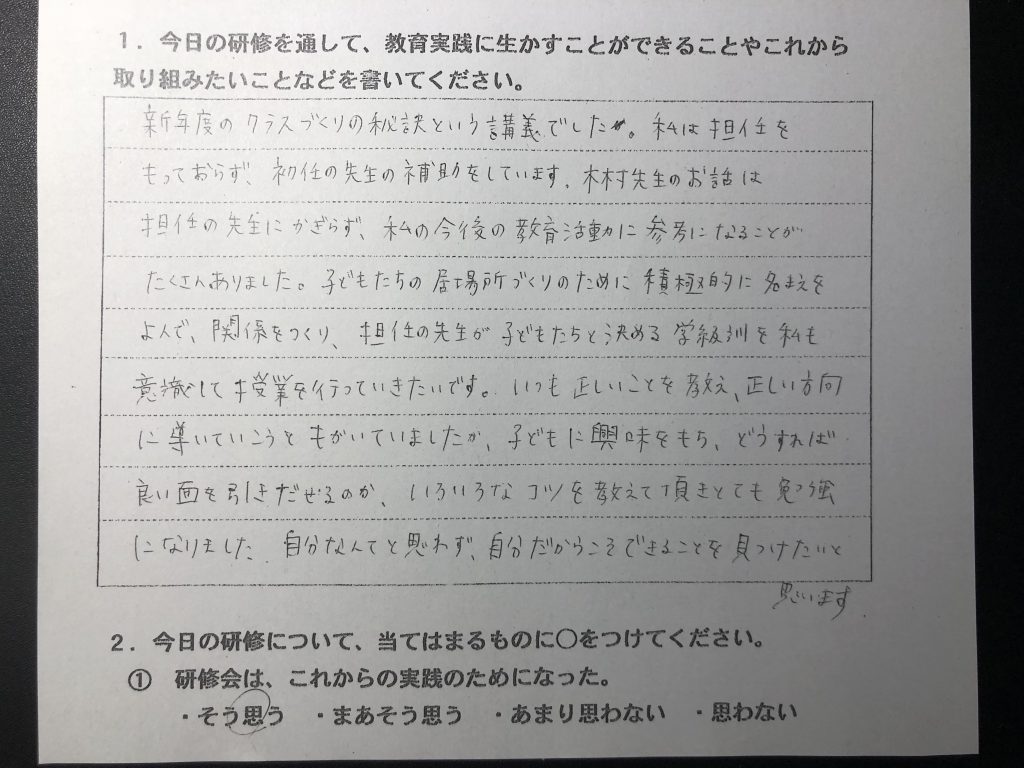 1．今日の研修を通して、教育実践に生かすことができることやこれから
取り組みたいことなどを書いてください。
新年度のクラスづくりの秘訣という講義でしたが。私は担任を
もっておらず、初任の先生の補助をしています。木村先生のお話は
担任の先生にかぎらず、私の今後の教育活動に参考になることが
たくさんありました。子どもたちの居場所づくりのために積極的に名まえを
よんで、関係をつくり、担任の先生が子どもたちと決める学級訓を私も
意識して授業を行っていきたいです。いつも正しいことを教え、正しい方向
に導いていこうともがいていましたが、子どもに興味をもち、どうすれば
良い面を引きだせるのか、いろいろなコツを教えて頂きとても勉強
になりました 自分なんてと思わず、自分だからこそできることを見つけたいと
思います
2．今日の研修について、当てはまるものに〇をつけてください。
① 研修会は、これからの実践のためになった。
・そう思う ・まあそう思う ・あまり思わない ・思わない